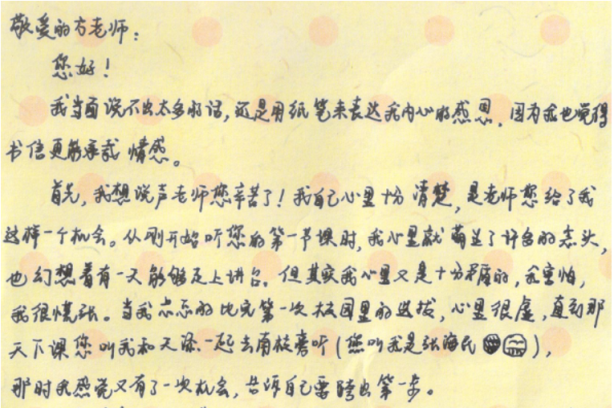 敬爱的方老师：
您好！
我当面说不出太多的话，还是用纸笔来表达我内心的感恩，因为我也觉得
书信更能承载情感。
首先，我想说声老师您辛苦了！我自己心里十分清楚，是老师您给了我
这样一个机会。从刚开始听您的第一节课时，我心里就萌生了许多的念头，
也幻想着有一天能够走上讲台。但其实我心里又是十分矛盾的，我害怕，
我很慌张。当我忐忑的比完第一次校园里的选拔，心里很虚，直到那
天下课您叫我和天涤一起去南校旁听（您叫我是张海氏），
那时我感觉又有了一次机会，告诉自己要踏出第一步。